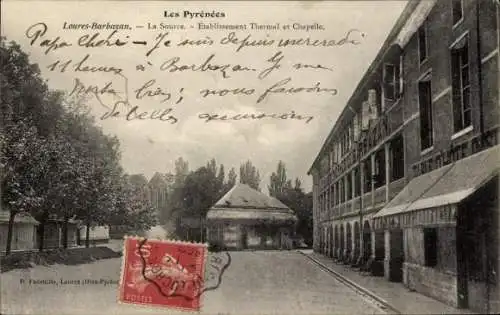 Les Pyrénées
Loures-Barbazan. — La Source. — Établissement Thermal et Chapelle.
Papa chéri — Je suis depuis mercredi
11 heures à Barbazan. Je me
très bien; nous faisons
de belles excursions
P. Fabouille, Loures (Htes-Pyr